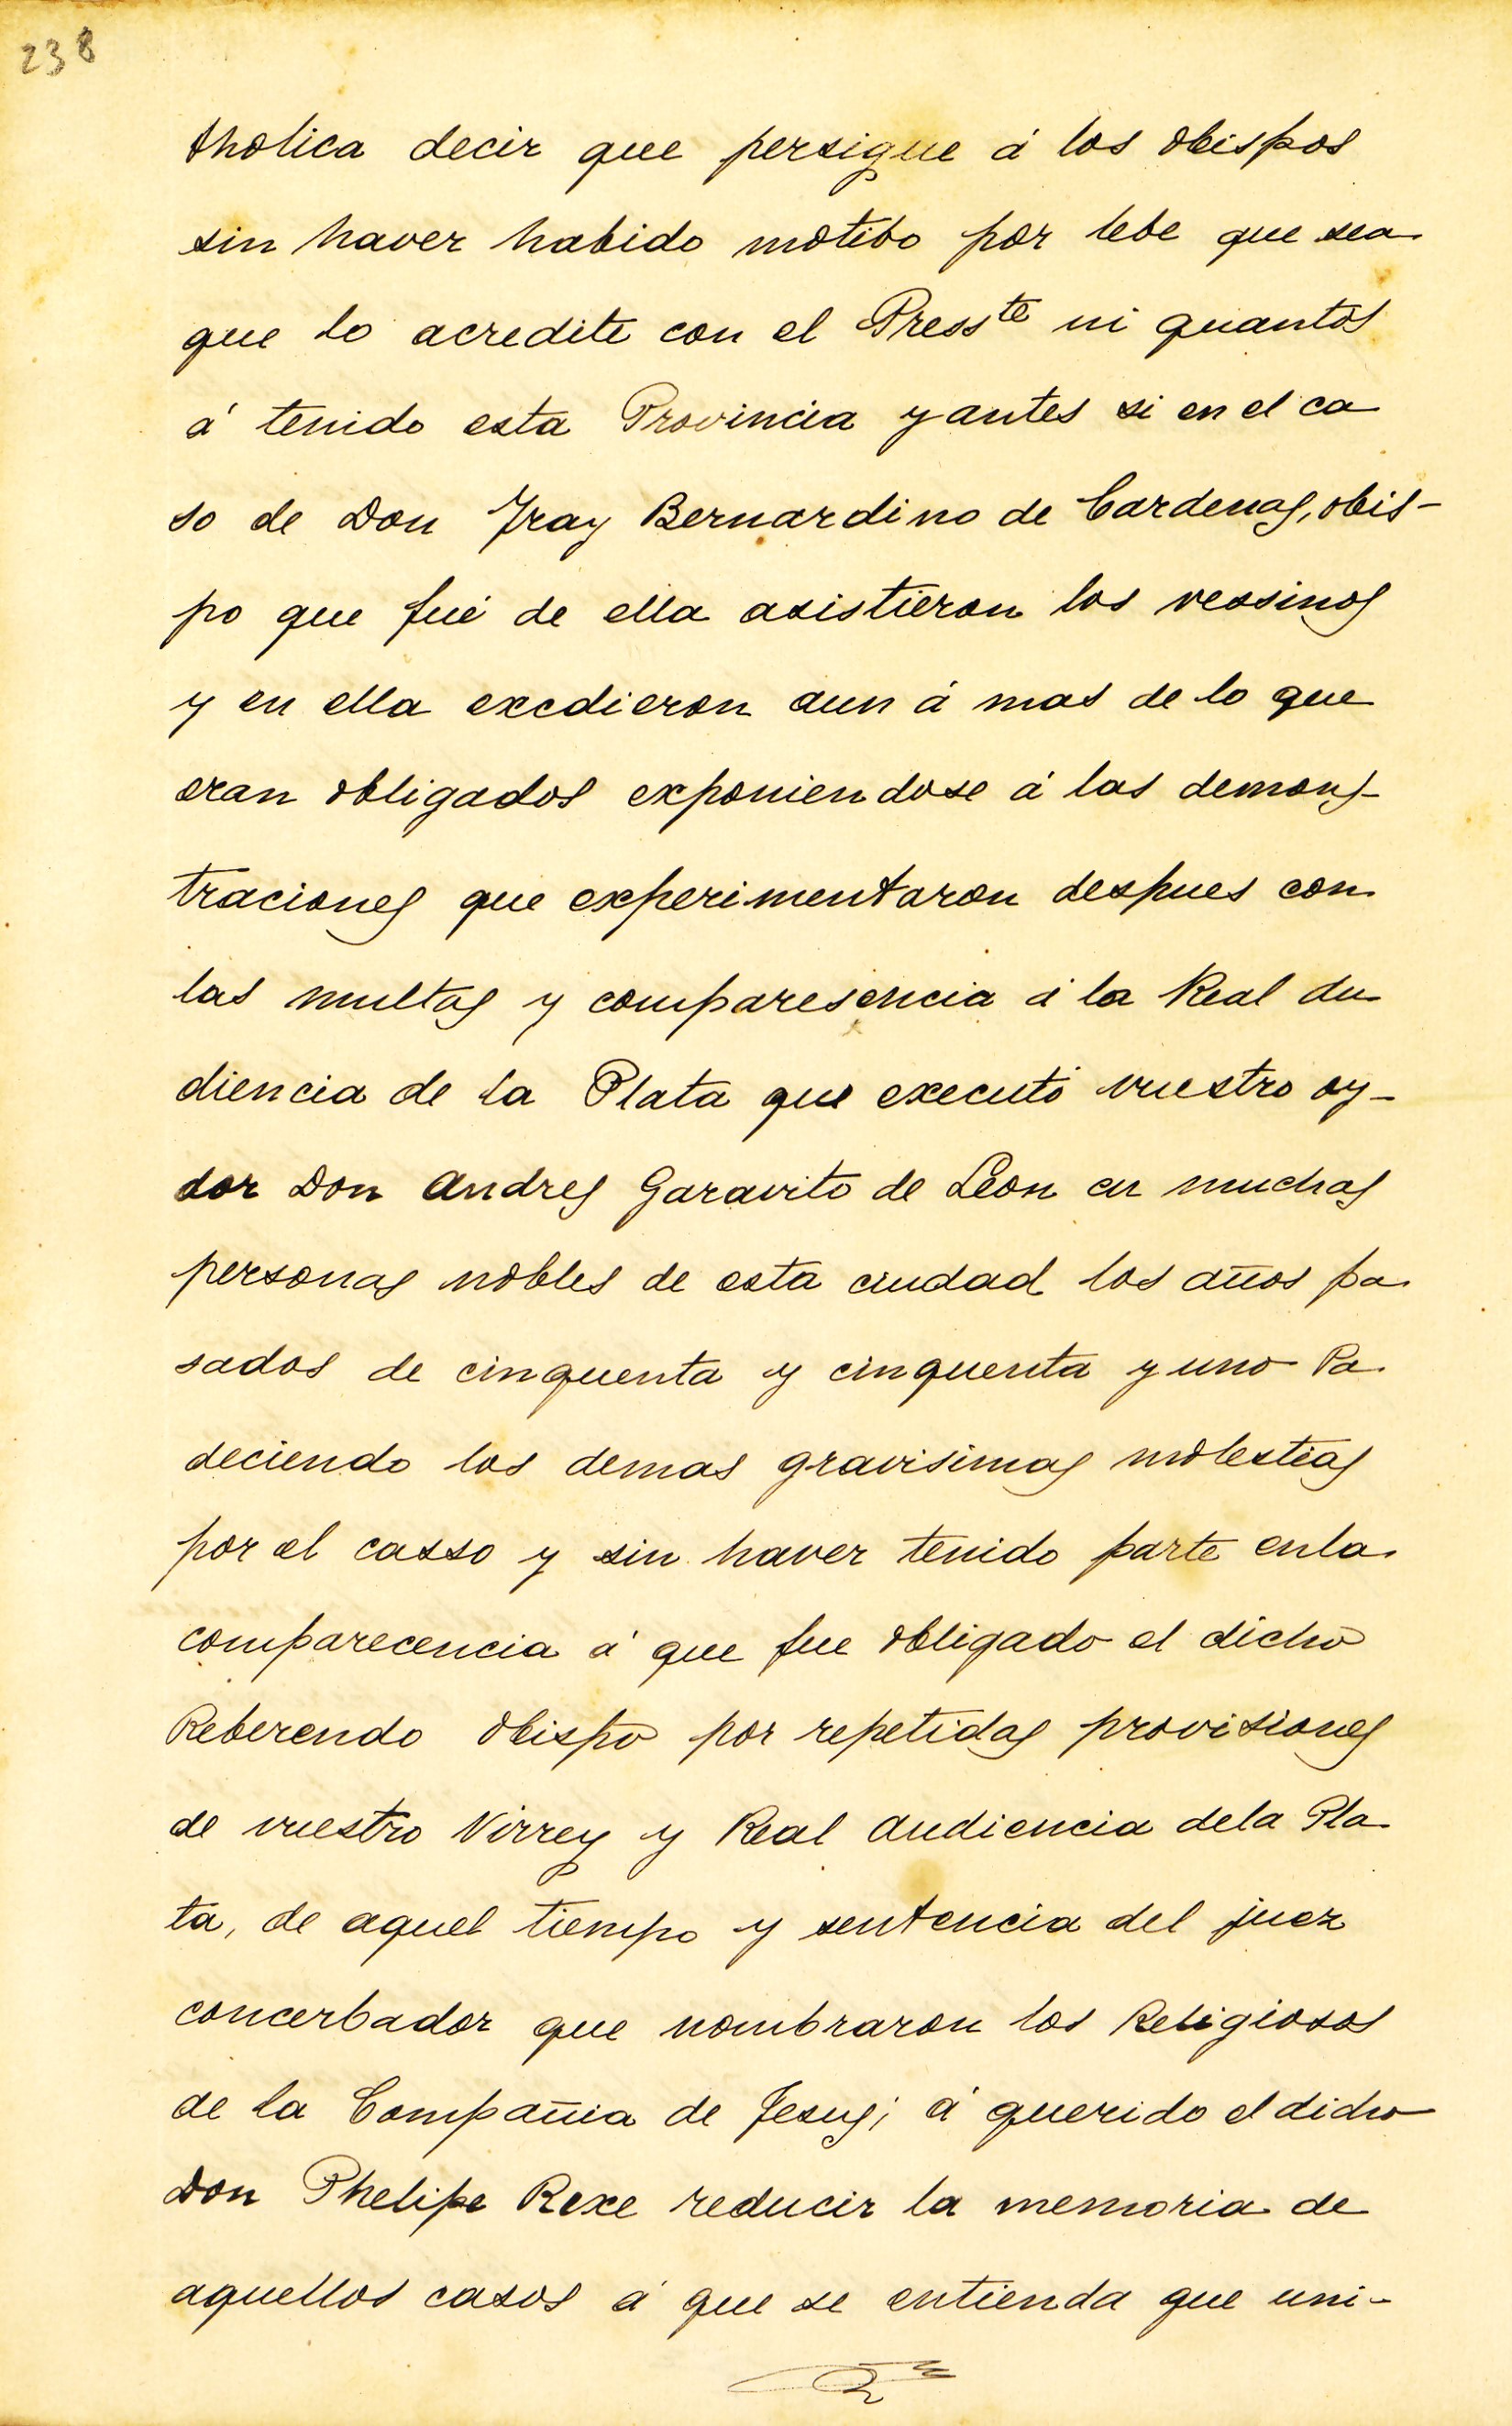 238
tholica decir que persigue á los obispos
sin haver habido motibo por lebe que sea
que lo acredite con el Press^te ni quantos
á tenido esta Provincia y antes si en el ca
so de Don Fray Bernardino de Cardenas, obis-
po que fué de ella asistieron los vessinos
y en ella excdieron aun á mas de lo que
eran obligados exponiendose á las demons-
traciones que experimentaron despues con
las multas y comparesencia á la Real Au
diencia de la Plata que executó vuestro oy-
dor Don Andres Garavito de Leon en muchas
personas nobles de esta ciudad los años pa
sados de cinquenta y cinquenta y uno Pa
deciendo los demas gravisimas molestias
por el casso y sin haver tenido parte en la
comparecencia á que fue obligado el dicho
Reberendo obispo por repetidas provisiones
de vuestro Virrey y Real Audiencia dela Pla
ta, de aquel tiempo y sentencia del juez
concerbador que nombraron los Religiosos
de la Compañia de Jesus; á querido el dicho
Don Phelipe Rexe reducir la memoria de
aquellos casos á que se entienda que uni-